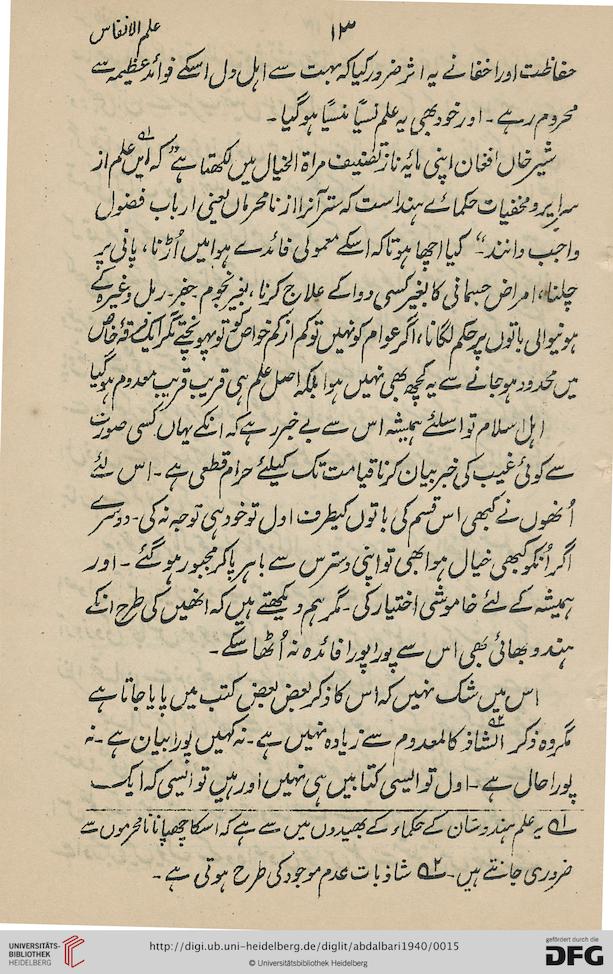 علم الانفاس
۱۳
حفاظت اور اخفا نے یہ اثر ضرور کیا کہ بہت سے اہل دل اسکے فوائد عظیمہ سے
محروم رہے ۔ اور خود بھی یہ علم نسیًا منسیًا ہو گیا ۔
شیر خاں افغان اپنی مایۂ ناز تصنیف مراۃ الخیال میں لکھتا ہے "کہ ایں علم از
سرایر و مخفیات حکمائے ہند است کہ ستر آنرا از نامحرماں یعنی ارباب فضول
واجب دانند" کیا اچھا ہوتا کہ اسکے معمولی فائدے ہوا میں اُڑنا، پانی پر
چلنا، امراض جسمانی کا بغیر کسی دوا کے علاج کرنا، بغیر نجوم ۔ جفر ۔ رمل وغیرہ کے
ہونیوالی باتوں پر حکم لگانا، اگر عوام کو نہیں تو کم از کم خواص کو تو پہونچتے مگر ایک فرقۂ خاص
میں محدود ہو جانے سے یہ کچھ بھی نہیں ہوا بلکہ اصل علم ہی قریب قریب معدوم ہو گیا
اہل اسلام تو اسلئے ہمیشہ اس سے بے خبر رہے کہ انکے یہاں کسی صورت
سے کوئی غیب کی خبر بیان کرنا قیامت تک کیلئے حرام قطعی ہے ۔ اس لئے
اُنھوں نے کبھی اس قسم کی باتوں کیطرف اول تو خود ہی توجہ نہ کی ۔ دوسرے
اگر اُنکو کبھی خیال ہوا بھی تو اپنی دسترس سے باہر پا کر مجبور ہو گئے ۔ اور
ہمیشہ کے لئے خاموشی اختیار کی ۔ مگر ہم دیکھتے ہیں کہ انھیں کی طرح انکے
ہندو بھائی بھی اس سے پورا پورا فائدہ نہ اُٹھا سکے ۔
اس میں شک نہیں کہ اس کا ذکر بعض بعض کتب میں پایا جاتا ہے
مگر وہ ذکر الشاذ کالمعدوم سے زیادہ نہیں ہے ۔ نہ کہیں پورا بیان ہے ۔ نہ
پورا حال ہے ۔ اول تو ایسی کتابیں ہی نہیں اور ہیں تو ایسی کہ ایک
۱؎ یہ علم ہندوستان کے حکماء کے بھیدوں میں سے ہے کہ اسکا چھپانا نامحرموں سے
ضروری جانتے ہیں ۔ ۲؎ شاذ بات عدم موجود کی طرح ہوتی ہے ۔
UNIVERSITÄTS-
BIBLIOTHEK
HEIDELBERG
http://digi.ub.uni-heidelberg.de/diglit/abdalbari1940/0015
© Universitätsbibliothek Heidelberg
gefördert durch die
DFG